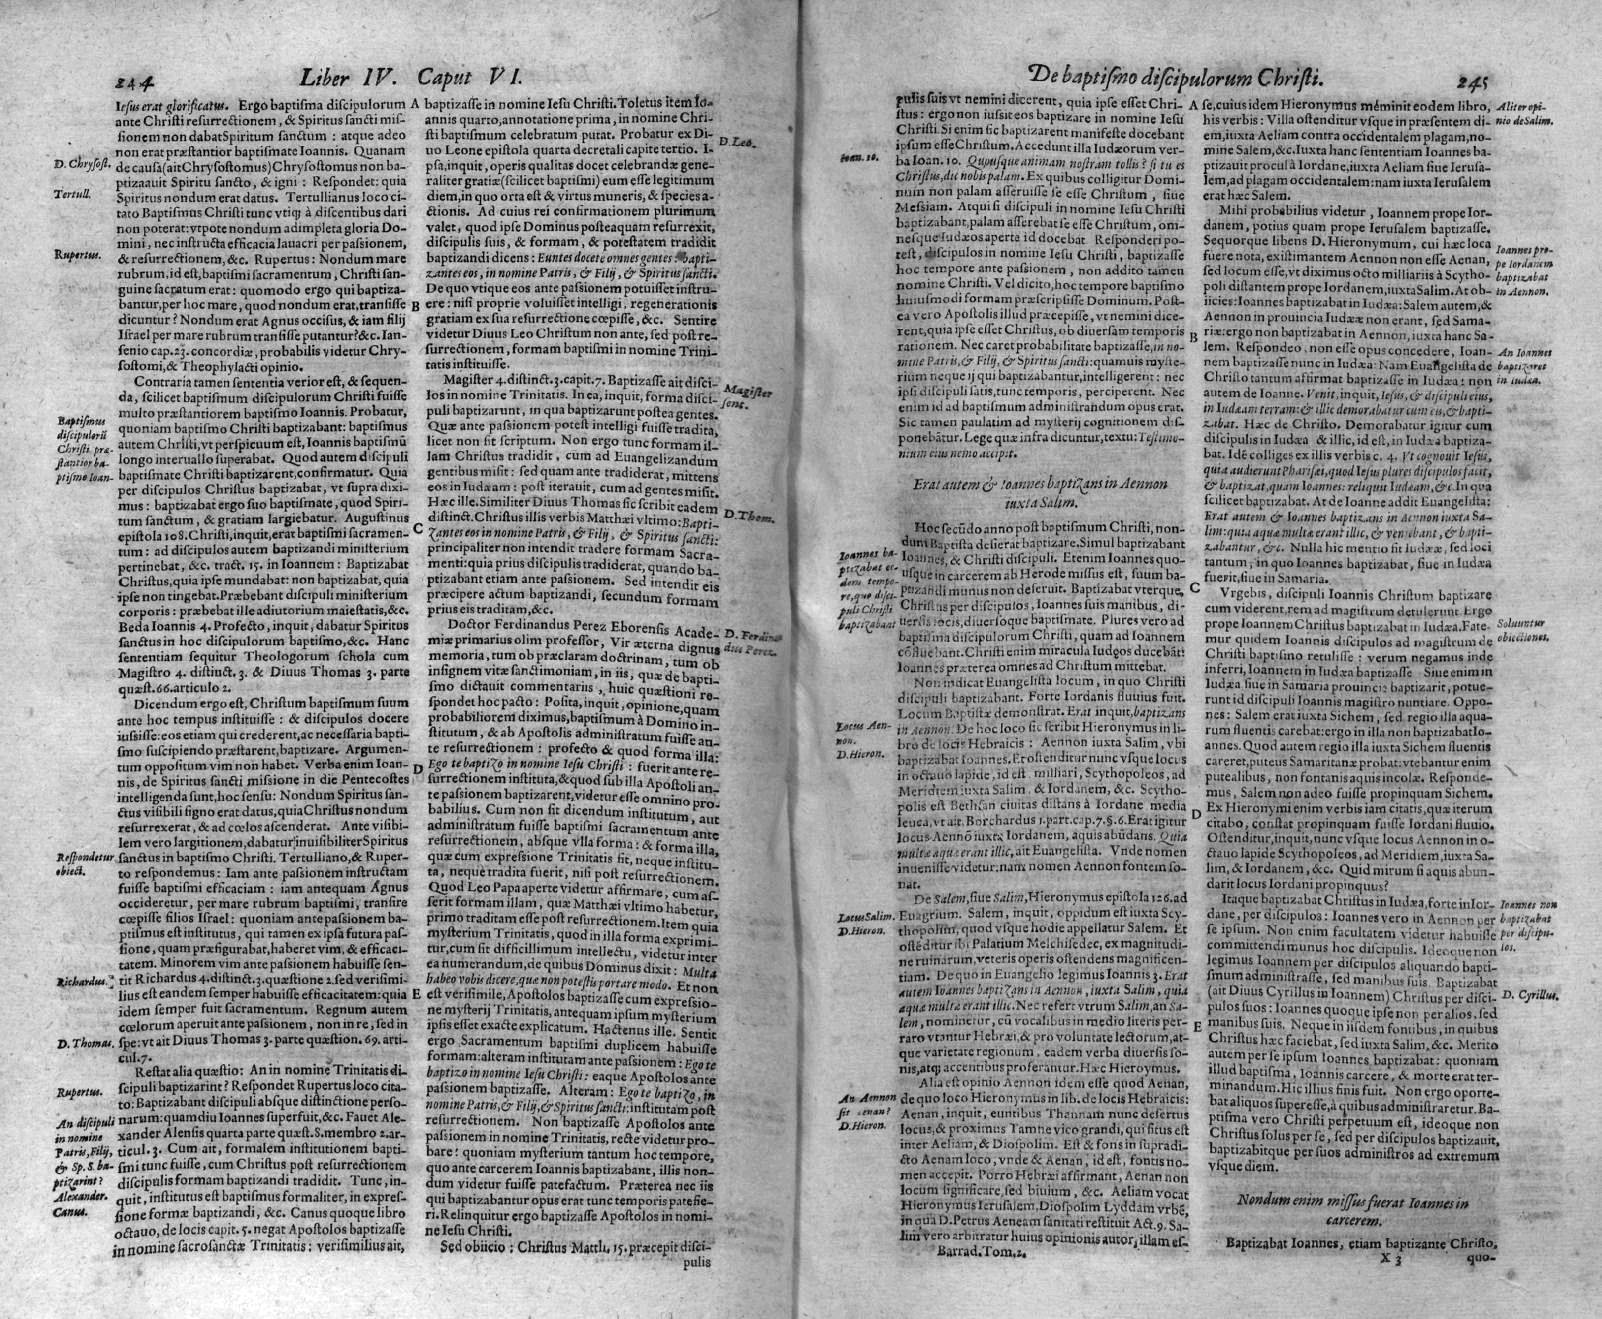 244 Liber IV. Caput VI.
Iesus erat glorificatus. Ergo baptisma discipulorum
ante Christi resurrectionem, & Spiritus sancti mis-
sionem non dabat Spiritum sanctum : atque adeo
non erat præstantior baptismate Ioannis. Quanam
de causa (ait Chrysostomus) Chrysostomus non ba-
ptizauit Spiritu sancto, & igni : Respondet: quia
Spiritus nondum erat datus. Tertullianus loco ci-
tato Baptismus Christi tunc vtiq; à discentibus dari
non poterat: vtpote nondum adimpleta gloria Do-
mini, nec instructa efficacia lauacri per passionem,
& resurrectionem, &c. Rupertus: Nondum mare
rubrum, id est, baptismi sacramentum, Christi san-
guine sacratum erat: quomodo ergo qui baptiza-
bantur, per hoc mare, quod nondum erat, transisse
dicuntur? Nondum erat Agnus occisus, & iam filij
Israel per mare rubrum transisse putantur? &c. Ian-
senio cap. 23. concordiæ, probabilis videtur Chry-
sostomi, & Theophylacti opinio.
Contraria tamen sententia verior est, & sequen-
da, scilicet baptismum discipulorum Christi fuisse
multo præstantiorem baptismo Ioannis. Probatur,
quoniam baptismo Christi baptizabant: baptismus
autem Christi, vt perspicuum est, Ioannis baptismū
longo interuallo superabat. Quod autem discipuli
baptismate Christi baptizarent, confirmatur. Quia
per discipulos Christus baptizabat, vt supra dixi-
mus : baptizabat ergo suo baptismate, quod Spiri-
tum sanctum, & gratiam largiebatur. Augustinus
epistola 108. Christi, inquit, erat baptismi sacramen-
tum : ad discipulos autem baptizandi ministerium
pertinebat, &c. tract. 15. in Ioannem : Baptizabat
Christus, quia ipse mundabat: non baptizabat, quia
ipse non tingebat. Præbebant discipuli ministerium
corporis : præbebat ille adiutorium maiestatis, &c.
Beda Ioannis 4. Profecto, inquit, dabatur Spiritus
sanctus in hoc discipulorum baptismo, &c. Hanc
sententiam sequitur Theologorum schola cum
Magistro 4. distinct. 3. & Diuus Thomas 3. parte
quæst. 66. articulo 2.
Dicendum ergo est, Christum baptismum suum
ante hoc tempus instituisse : & discipulos docere
iussisse: eos etiam qui crederent, ac necessaria bapti-
smo suscipiendo præstarent, baptizare. Argumen-
tum oppositum vim non habet. Verba enim Ioan-
nis, de Spiritus sancti missione in die Pentecostes
intelligenda sunt, hoc sensu: Nondum Spiritus san-
ctus visibili signo erat datus, quia Christus nondum
resurrexerat, & ad cœlos ascenderat. Ante visibi-
lem vero largitionem, dabatur inuisibiliter Spiritus
sanctus in baptismo Christi. Tertulliano, & Ruper-
to respondemus: Iam ante passionem instructam
fuisse baptismi efficaciam : iam antequam Agnus
occideretur, per mare rubrum baptismi, transire
cœpisse filios Israel : quoniam ante passionem ba-
ptismus est institutus, qui tamen ex ipsa futura pas-
sione, quam præfigurabat, haberet vim, & efficaci-
tatem. Minorem vim ante passionem habuisse sen-
tit Richardus 4. distinct. 3. quæstione 2. sed verisimi-
lius est eandem semper habuisse efficacitatem: quia
idem semper fuit sacramentum. Regnum autem
cœlorum aperuit ante passionem, non in re, sed in
spe: vt ait Diuus Thomas 3. parte quæstion. 69. arti-
cul. 7.
Restat alia quæstio: An in nomine Trinitatis di-
scipuli baptizarint? Respondet Rupertus loco cita-
to: Baptizabant discipuli absque distinctione perso-
narum: quamdiu Ioannes superfuit, &c. Fauet Ale-
xander Alensis quarta parte quæst. 8. membro 2. ar-
ticul. 3. Cum ait, formalem institutionem bapti-
smi tunc fuisse, cum Christus post resurrectionem
discipulis formam baptizandi tradidit. Tunc, in-
quit, institutus est baptismus formaliter, in expres-
sione formæ baptizandi, &c. Canus quoque libro
octauo, de locis capit. 5. negat Apostolos baptizasse
in nomine sacrosanctæ Trinitatis: verisimilius ait,
D. Chrysost.
Tertull.
Rupertus.
Baptismus
discipulorū
Christi præ-
stantior ba-
ptismo Ioan-
Respondetur
obiect.
Richardus.
D. Thomas.
Rupertus.
An discipuli
in nomine
Patris, Filij,
& Sp. S. ba-
ptizarint?
Alexander.
Canus.
A
B
C
D
E
baptizasse in nomine Iesu Christi. Toletus item Io-
annis quarto, annotatione prima, in nomine Chri-
sti baptismum celebratum putat. Probatur ex Di-
uo Leone epistola quarta decretali capite tertio. I-
psa, inquit, operis qualitas docet celebrandæ gene-
raliter gratiæ (scilicet baptismi) eum esse legitimum
diem, in quo orta est & virtus muneris, & species a-
ctionis. Ad cuius rei confirmationem plurimum
valet, quod ipse Dominus posteaquam resurrexit,
discipulis suis, & formam, & potestatem tradidit
baptizandi dicens : Euntes docete omnes gentes bapti-
zantes eos, in nomine Patris, & Filij, & Spiritus sancti.
De quo vtique eos ante passionem potuisset instru-
ere: nisi proprie voluisset intelligi, regenerationis
gratiam ex sua resurrectione cœpisse, &c. Sentire
videtur Diuus Leo Christum non ante, sed post re-
surrectionem, formam baptismi in nomine Trini-
tatis instituisse.
Magister 4. distinct. 3. capit. 7. Baptizasse ait disci-
los in nomine Trinitatis. In ea, inquit, forma disci-
puli baptizarunt, in qua baptizarunt postea gentes.
Quæ ante passionem potest intelligi fuisse tradita,
licet non sit scriptum. Non ergo tunc formam il-
lam Christus tradidit, cum ad Euangelizandum
gentibus misit : sed quam ante tradiderat, mittens
eos in Iudæam : post iterauit, cum ad gentes misit.
Hæc ille. Similiter Diuus Thomas sic scribit eadem
distinct. Christus illis verbis Matthæi vltimo: Bapti-
zantes eos in nomine Patris, & Filij, & Spiritus sancti:
principaliter non intendit tradere formam Sacra-
menti: quia prius discipulis tradiderat, quando ba-
ptizabant etiam ante passionem. Sed intendit eis
præcipere actum baptizandi, secundum formam
prius eis traditam, &c.
Doctor Ferdinandus Perez Eborensis Acade-
miæ primarius olim professor, Vir æterna dignus
memoria, tum ob præclaram doctrinam, tum ob
insignem vitæ sanctimoniam, in iis, quæ de bapti-
smo dictauit commentariis, huic quæstioni re-
spondet hoc pacto : Posita, inquit, opinione, quam
probabiliorem diximus, baptismum à Domino in-
stitutum, & ab Apostolis administratum fuisse an-
te resurrectionem : profecto & quod forma illa:
Ego te baptizo in nomine Iesu Christi : fuerit ante re-
surrectionem instituta, & quod sub illa Apostoli an-
te passionem baptizarent, videtur esse omnino pro-
babilius. Cum non sit dicendum institutum, aut
administratum fuisse baptismi sacramentum ante
resurrectionem, absque vlla forma: & forma illa,
quæ cum expressione Trinitatis fit, neque institu-
ta, neque tradita fuerit, nisi post resurrectionem.
Quod Leo Papa aperte videtur affirmare, cum as-
serit formam illam, quæ Matthæi vltimo habetur,
primo traditam esse post resurrectionem. Item quia
mysterium Trinitatis, quod in illa forma exprimi-
tur, cum sit difficillimum intellectu, videtur inter
ea numerandum, de quibus Dominus dixit : Multa
habeo vobis dicere, quæ non potestis portare modo. Et non
est verisimile, Apostolos baptizasse cum expressio-
ne mysterij Trinitatis, antequam ipsum mysterium
ipsis esset exacte explicatum. Hactenus ille. Sentit
ergo Sacramentum baptismi duplicem habuisse
formam: alteram institutam ante passionem : Ego te
baptizo in nomine Iesu Christi : eaque Apostolos ante
passionem baptizasse. Alteram : Ego te baptizo, in
nomine Patris, & Filij, & Spiritus sancti: institutam post
resurrectionem. Non baptizasse Apostolos ante
passionem in nomine Trinitatis, recte videtur pro-
bare : quoniam mysterium tantum hoc tempore,
quo ante carcerem Ioannis baptizabant, illis non-
dum videtur fuisse patefactum. Præterea nec iis
qui baptizabantur opus erat tunc temporis patefie-
ri. Relinquitur ergo baptizasse Apostolos in nomi-
ne Iesu Christi.
Sed obiicio : Christus Matth. 15. præcepit disci-
pulis
D. Leo.
Magister
sent.
D. Thom.
D. Ferdinan-
dus Perez.
De baptismo discipulorum Christi. 245
pulis suis vt nemini dicerent, quia ipse esset Chri-
stus : ergo non iussit eos baptizare in nomine Iesu
Christi. Si enim sic baptizarent manifeste docebant
ipsum esse Christum. Accedunt illa Iudæorum ver-
ba Ioan. 10. Quousque animam nostram tollis? si tu es
Christus, dic nobis palam. Ex quibus colligitur Domi-
num non palam asseruisse se esse Christum, siue
Messiam. Atqui si discipuli in nomine Iesu Christi
baptizabant, palam asserebat se esse Christum, om-
nesque Iudæos aperte id docebat. Responderi po-
test, discipulos in nomine Iesu Christi, baptizasse
hoc tempore ante passionem, non addito tamen
nomine Christi. Vel dicito, hoc tempore baptismo
huiusmodi formam præscripsisse Dominum. Post-
ea vero Apostolis illud præcepisse, vt nemini dice-
rent, quia ipse esset Christus, ob diuersam temporis
rationem. Nec caret probabilitate baptizasse, in no-
mine Patris, & Filij, & Spiritus sancti: quamuis myste-
rium neque ij qui baptizabantur, intelligerent : nec
ipsi discipuli satis, tunc temporis, perciperent. Nec
enim id ad baptismum administrandum opus erat.
Sic tamen paulatim ad mysterij cognitionem dis-
ponebātur. Lege quæ infra dicuntur, textu: Testimo-
nium eius nemo accipit.
Erat autem & Ioannes baptizans in Aennon
iuxta Salim.
Hoc secūdo anno post baptismum Christi, non-
dum Baptista desierat baptizare. Simul baptizabant
Ioannes, & Christi discipuli. Etenim Ioannes quo-
usque in carcerem ab Herode missus est, suum ba-
ptizandi munus non deseruit. Baptizabat vterque,
Christus per discipulos, Ioannes suis manibus, di-
uersis locis, diuersoque baptismate. Plures vero ad
baptisma discipulorum Christi, quam ad Ioannem
cōfluebant. Christi enim miracula Iudęos ducebāt:
Ioannes præterea omnes ad Christum mittebat.
Non indicat Euangelista locum, in quo Christi
discipuli baptizabant. Forte Iordanis fluuius fuit.
Locum Baptistæ demonstrat. Erat inquit, baptizans
in Aennon. De hoc loco sic scribit Hieronymus in li-
bro de locis Hebraicis : Aennon iuxta Salim, vbi
baptizabat Ioannes. Et ostenditur nunc vsque locus
in octauo lapide, id est milliari, Scythopoleos, ad
Meridiem iuxta Salim. & Iordanem, &c. Scytho-
polis est Bethsan ciuitas distans à Iordane media
leuca, vt ait. Borchardus 1. part. cap. 7. §. 6. Erat igitur
locus Aennō iuxta Iordanem, aquis abūdans. Quia
multæ aquæ erant illic, ait Euangelista. Vnde nomen
inuenisse videtur, nam nomen Aennon fontem so-
nat.
De Salem, siue Salim, Hieronymus epistola 126. ad
Euagrium. Salem, inquit, oppidum est iuxta Scy-
thopolim, quod vsque hodie appellatur Salem. Et
ostēditur ibi Palatium Melchisedec, ex magnitudi-
ne ruinarum, veteris operis ostendens magnificen-
tiam. De quo in Euangelio legimus Ioannis 3. Erat
autem Ioannes baptizans in Aennon, iuxta Salim, quia
aquæ multæ erant illic. Nec refert vtrum Salim, an Sa-
lem, nominetur, cū vocalibus in medio literis per-
raro vtantur Hebræi, & pro voluntate lectorum, at-
que varietate regionum, eadem verba diuersis so-
nis, atq; accentibus proferantur. Hæc Hieronymus.
Alia est opinio Aennon idem esse quod Aenan,
de quo loco Hieronymus in lib. de locis Hebraicis:
Aenan, inquit, euntibus Thamnam nunc desertus
locus, & proximus Tamnæ vico grandi, qui situs est
inter Aeliam, & Diospolim. Est & fons in supradi-
cto Aenam loco, vnde & Aenan, id est, fontis no-
men accepit. Porro Hebræi affirmant, Aenan non
locum significare, sed biuium, &c. Aeliam vocat
Hieronymus Ierusalem, Diospolim Lyddam vrbē,
in qua D. Petrus Aeneam sanitati restituit Act. 9. Sa-
lim vero arbitratur huius opinionis autor, illam es-
Barrad. Tom. 2.
Ioan. 10.
Ioannes ba-
ptizabat eo-
dem tempo-
re, quo disci-
puli Christi
baptizabant
Locus Aen-
non.
D. Hieron.
Locus Salim.
D. Hieron.
An Aennon
sit Aenan?
D. Hieron.
A
B
C
D
E
se, cuius idem Hieronymus meminit eodem libro,
his verbis : Villa ostenditur vsque in præsentem di-
em, iuxta Aeliam contra occidentalem plagam, no-
mine Salem, &c. Iuxta hanc sententiam Ioannes ba-
ptizauit procul à Iordane, iuxta Aeliam siue Ierusa-
lem, ad plagam occidentalem: nam iuxta Ierusalem
erat hæc Salem.
Mihi probabilius videtur, Ioannem prope Ior-
danem, potius quam prope Ierusalem baptizasse.
Sequorque libens D. Hieronymum, cui hæc loca
fuere nota, existimantem Aennon non esse Aenan,
sed locum esse, vt diximus octo milliariis à Scytho-
poli distantem prope Iordanem, iuxta Salim. At ob-
iicies: Ioannes baptizabat in Iudæa: Salem autem, &
Aennon in prouincia Iudææ non erant, sed Sama-
riæ: ergo non baptizabat in Aennon, iuxta hanc Sa-
lem. Respondeo, non esse opus concedere, Ioan-
nem baptizasse nunc in Iudæa: Nam Euangelista de
Christo tantum affirmat baptizasse in Iudæa : non
autem de Ioanne. Venit, inquit, Iesus, & discipuli eius,
in Iudæam terram: & illic demorabatur cum eis, & bapti-
zabat. Hæc de Christo. Demorabatur igitur cum
discipulis in Iudæa & illic, id est, in Iudæa baptiza-
bat. Idē colliges ex illis verbis c. 4. Vt cognouit Iesus,
quia audierunt Pharisæi, quod Iesus plures discipulos facit,
& baptizat, quam Ioannes: reliquit Iudæam, &c. In qua
scilicet baptizabat. At de Ioanne addit Euangelista:
Erat autem & Ioannes baptizans in Aennon iuxta Sa-
lim: quia aquæ multæ erant illic, & veniebant, & bapti-
zabantur, &c. Nulla hic mentio fit Iudææ, sed loci
tantum, in quo Ioannes baptizabat, siue in Iudæa
fuerit, siue in Samaria.
Vrgebis, discipuli Ioannis Christum baptizare
cum viderent, rem ad magistrum detulerunt. Ergo
prope Ioannem Christus baptizabat in Iudæa. Fate-
mur quidem Ioannis discipulos ad magistrum de
Christi baptismo retulisse : verum negamus inde
inferri, Ioannem in Iudæa baptizasse. Siue enim in
Iudæa siue in Samaria prouincia baptizarit, potue-
runt id discipuli Ioannis magistro nuntiare. Oppo-
nes : Salem erat iuxta Sichem, sed regio illa aqua-
rum fluentis carebat: ergo in illa non baptizabat Io-
annes. Quod autem regio illa iuxta Sichem fluentis
careret, puteus Samaritanæ probat: vtebantur enim
putealibus, non fontanis aquis incolæ. Responde-
mus, Salem non adeo fuisse propinquam Sichem.
Ex Hieronymi enim verbis iam citatis, quæ iterum
citabo, constat propinquam fuisse Iordani fluuio.
Ostenditur, inquit, nunc vsque locus Aennon in o-
ctauo lapide Scythopoleos, ad Meridiem, iuxta Sa-
lim, & Iordanem, &c. Quid mirum si aquis abun-
darit locus Iordani propinquus?
Itaque baptizabat Christus in Iudæa, forte in Ior-
dane, per discipulos : Ioannes vero in Aennon per
se ipsum. Non enim facultatem videtur habuisse
committendi munus hoc discipulis. Ideoque non
legimus Ioannem per discipulos aliquando bapti-
smum administrasse, sed manibus suis. Baptizabat
(ait Diuus Cyrillus in Ioannem) Christus per disci-
pulos suos : Ioannes quoque ipse non per alios, sed
manibus suis. Neque in iisdem fontibus, in quibus
Christus hæc faciebat, sed iuxta Salim, &c. Merito
autem per se ipsum Ioannes baptizabat : quoniam
illud baptisma, Ioannis carcere, & morte erat ter-
minandum. Hic illius finis fuit. Non ergo oporte-
bat aliquos superesse, à quibus administraretur. Ba-
ptisma vero Christi perpetuum est, ideoque non
Christus solus per se, sed per discipulos baptizauit,
baptizabitque per suos administros ad extremum
vsque diem.
Nondum enim missus fuerat Ioannes in
carcerem.
Baptizabat Ioannes, etiam baptizante Christo,
X 3 quo-
Aliter opi-
nio de Salim.
Ioannes pro-
pe Iordanem
baptizabat
in Aennon.
An Ioannes
baptizaret
in Iudæa.
Soluuntur
obiectiones.
Ioannes non
baptizabat
per discipu-
los.
D. Cyrillus.